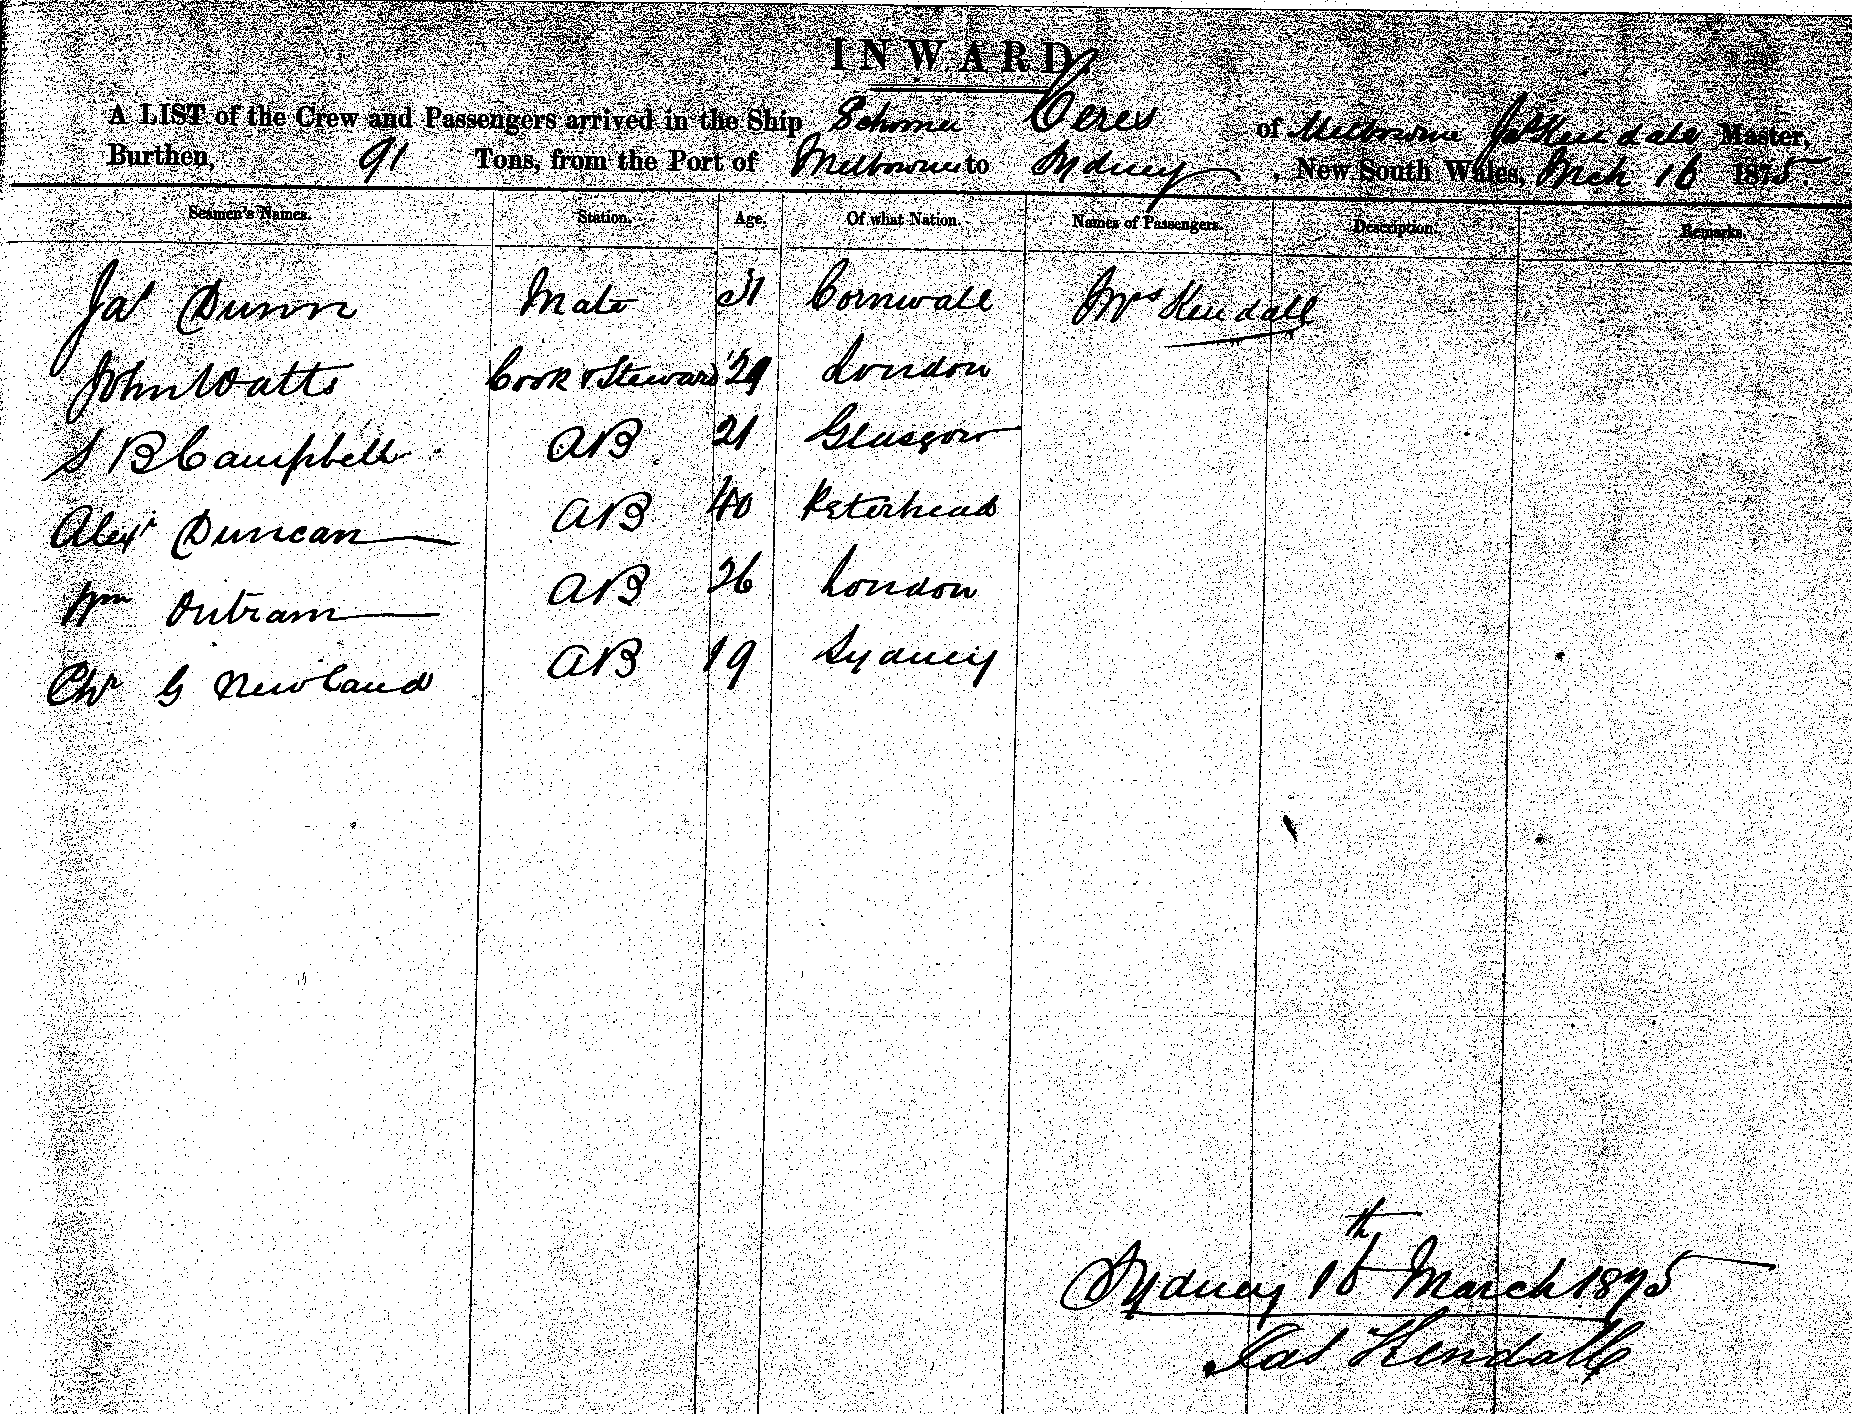 INWARD.
A LIST of the Crew and Passengers arrived in the Ship Schooner Ceres of Melbourne Jas Kendall Master,
Burthen, 91 Tons, from the Port of Melbourne to Sydney, New South Wales, Mch 16 1875
Seamen's Names. Station. Age. Of what Nation. Names of Passengers. Description. Remarks.
Jas Dunn Mate 31 Cornwall Mrs Kendall
John Watts Cook & Steward 29 London
S B Campbell AB 21 Glasgow
Alexr Duncan AB 40 Peterhead
Wm Outram AB 26 London
Chr G Newland AB 19 Sydney
Sydney 16th March 1875
Jas Kendall